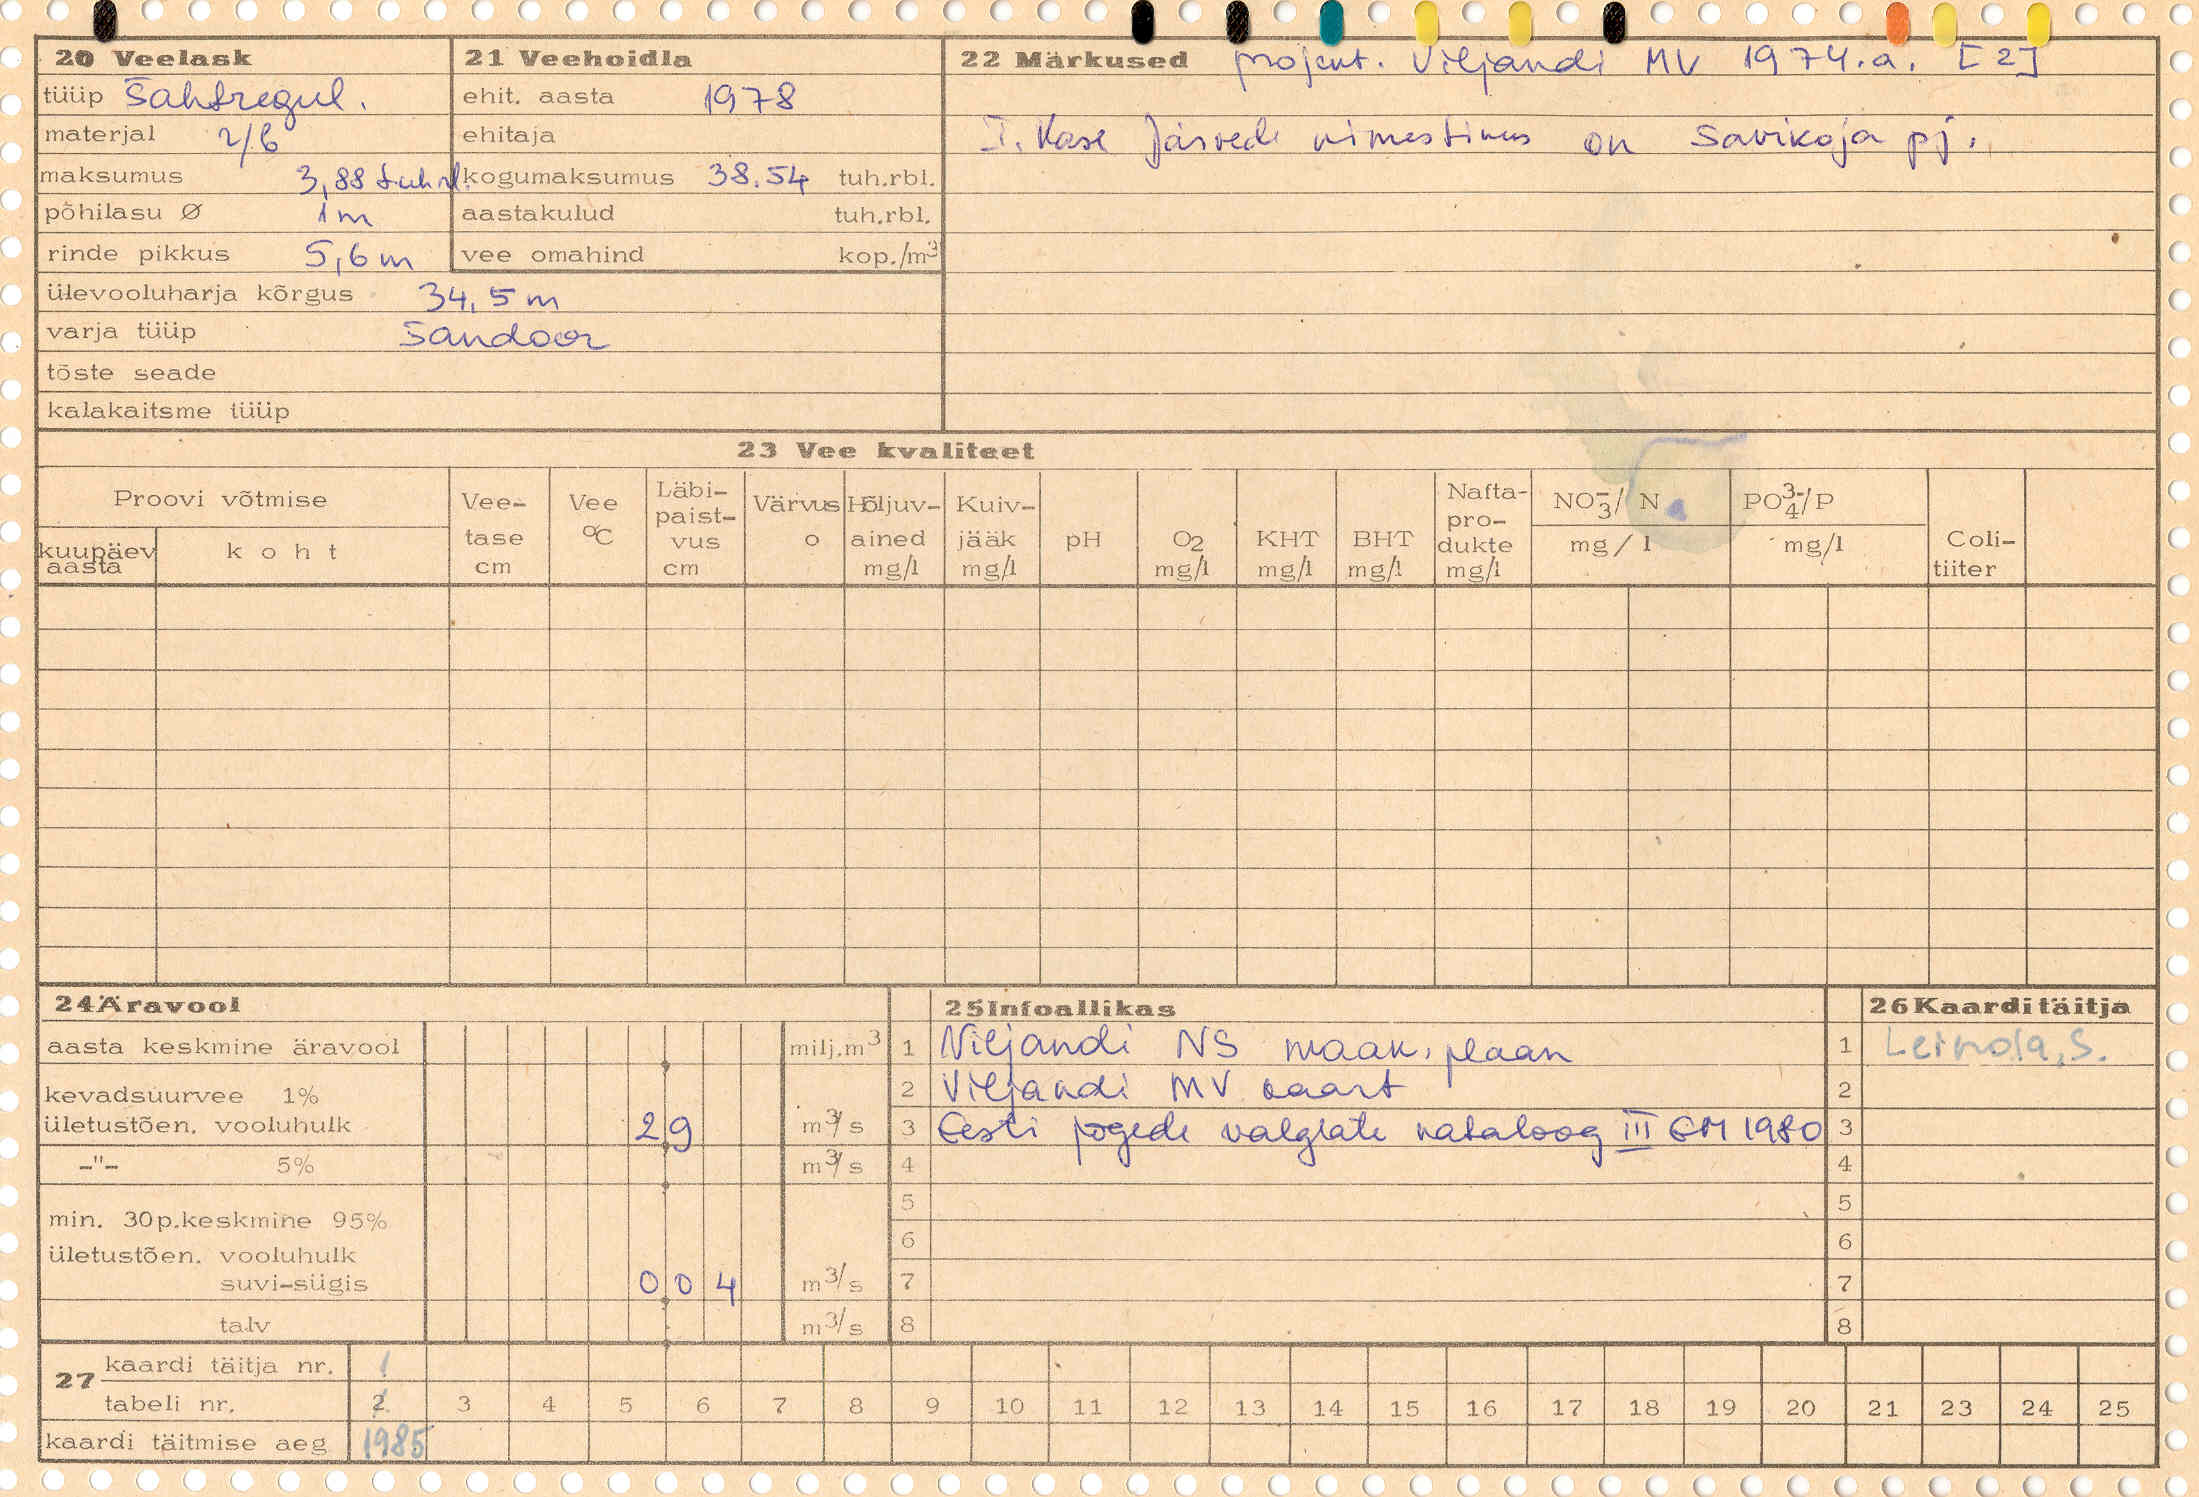 20 Veelask
tüüp Šahtregul.
materjal r/b
maksumus 3,88 tuh rl.
põhilasu Ø 1m
rinde pikkus 5,6 m
ülevooluharja kõrgus 34,5 m
varja tüüp Šandoor
tõste seade
kalakaitsme tüüp
21 Veehoidla
ehit. aasta 1978
ehitaja
kogumaksumus 38.54 tuh.rbl.
aastakulud tuh.rbl.
vee omahind kop./m³
22 Märkused projekt. Viljandi MV 1974.a. [2]
I. Kase Järvede nimestikus on Savikoja pj.
23 Vee kvaliteet
Proovi võtmise
kuupäev aasta
koht
Vee-tase cm
Vee °C
Läbi-paist-vus cm
Värvus o
Hõljuv-ained mg/l
Kuiv-jääk mg/l
pH
O2 mg/l
KHT mg/l
BHT mg/l
Nafta-pro-dukte mg/l
NO3⁻/N mg/l
PO4³⁻/P mg/l
Coli-tiiter
24 Äravool
aasta keskmine äravool milj.m³
kevadsuurvee 1%
ületustõen. vooluhulk 29 m³/s
-"- 5% m³/s
min. 30p.keskmine 95%
ületustõen. vooluhulk
suvi-sügis 0 0 4 m³/s
talv m³/s
25 Infoallikas
1 Viljandi NS maak. plaan
2 Viljandi MV kaart
3 Eesti jõgede valglate kataloog III EM 1980
4
5
6
7
8
26 Kaardi täitja
1 Leinola, S.
2
3
4
5
6
7
8
27 kaardi täitja nr. 1
tabeli nr. 2 3 4 5 6 7 8 9 10 11 12 13 14 15 16 17 18 19 20 21 23 24 25
kaardi täitmise aeg 1985